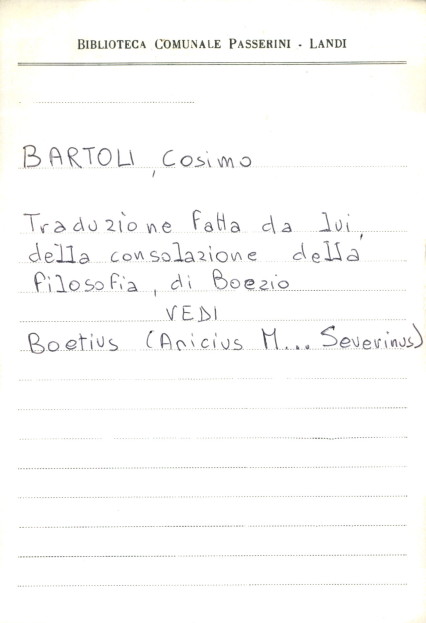 BIBLIOTECA COMUNALE PASSERINI - LANDI
BARTOLI, Cosimo
Traduzione fatta da lui,
della consolazione della
filosofia, di Boezio
VEDI
Boetius (Anicius M... Severinus)